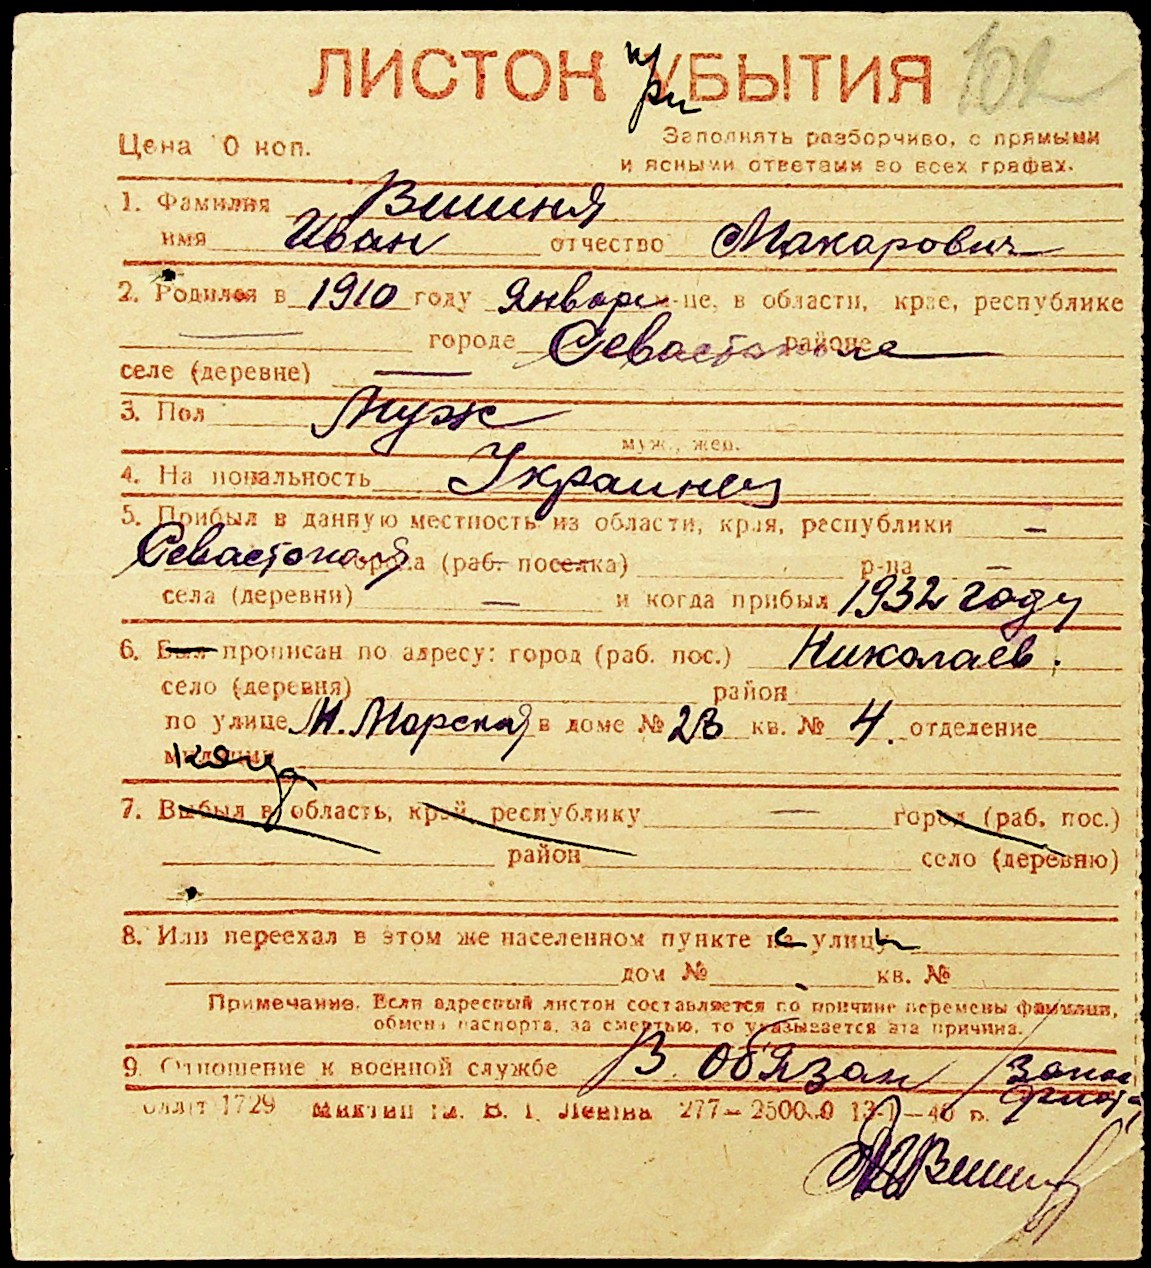 ЛИСТОК при УБЫТИЯ 102
Цена 10 коп.
Заполнять разборчиво, с прямыми
и ясными ответами во всех графах.
1. Фамилия Вишня
имя Иван отчество Макарович
2. Родился в 1910 году Январе м-це, в области, крае, республике
— городе Севастополе районе
селе (деревне) —
3. Пол Муж
муж., жен.
4. Национальность Украинец
5. Прибыл в данную местность из области, края, республики —
Севастополя города (раб. поселка) р-на —
села (деревни) — и когда прибыл 1932 году
6. Был прописан по адресу: город (раб. пос.) Николаев.
село (деревня) район
по улице М. Морская в доме № 23 кв. № 4. отделение
милиции
7. Выбыл в область, край, республику — город (раб. пос.)
район село (деревню)
8. Или переехал в этом же населенном пункте с улицы
дом № кв. №
Примечание. Если адресный листок составляется по причине перемены фамилии,
обмена паспорта, за смертью, то указывается эта причина.
9. Отношение к военной службе В. обязан
Обллит 1729 Миктип им. В. І. Леніна 277— 13-I—46 р.